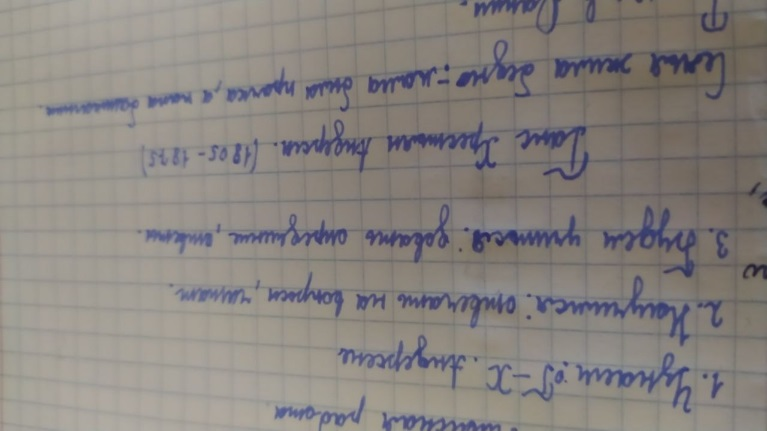 работа
1. Узнаем: о Г-Х. Андерсене
2. Научимся: отвечать на вопросы, читат.
3. Будем учиться: давать ответы.
Ганс Христиан Андерсен. (1805-1875)
Семья жила бедно: мама была прачка, а папа башмачник.
в Дании.